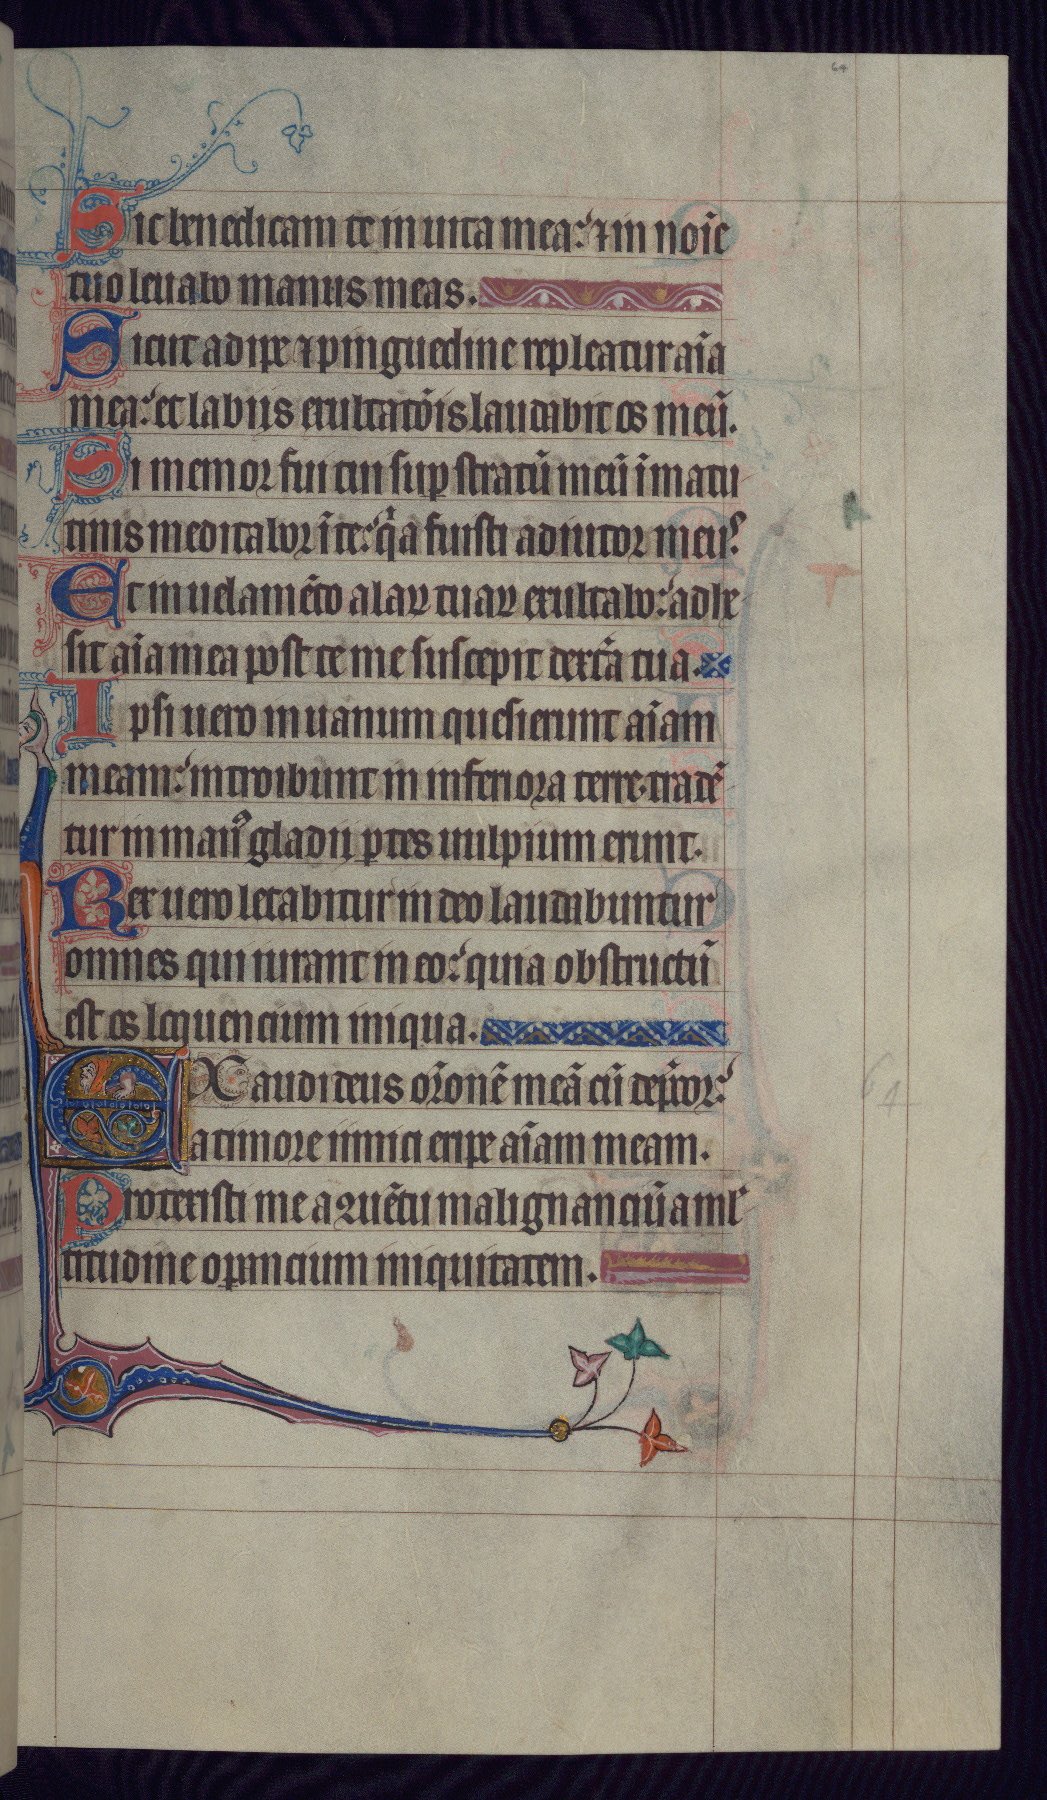 64
Sic benedicam te in uita mea: ⁊ in noīe
tuo leuabo manus meas.
Sicut adipe ⁊ pinguedine repleatur aīa
mea: et labijs exultatōis laudabit os meū.
Si memor fui tui sup̄ stratū meū ī matu
tinis meditabor ī te: q̄a fuisti adiutor meuꝰ
Et in uelamēto alaꝝ tuaꝝ exultabo: adhe
sit aīa mea post te me suscepit dext̄a tua.
Ipsi uero in uanum quesierunt aīam
meam: introibunt in inferiora terre. tradē
tur in manꝰ gladij ꝑtes uulpium erunt.
Rex uero letabitur in deo laudabuntur
omnes qui iurant in eo: quia obstructū
est os loquencium iniqua.
EXaudi deus or̄onē meā cū dep̄cor:
a timore inimici eripe aīam meam.
Protexisti me a ꝯuētu malignanciū a ml̄
titudine oꝑancium iniquitatem.
64